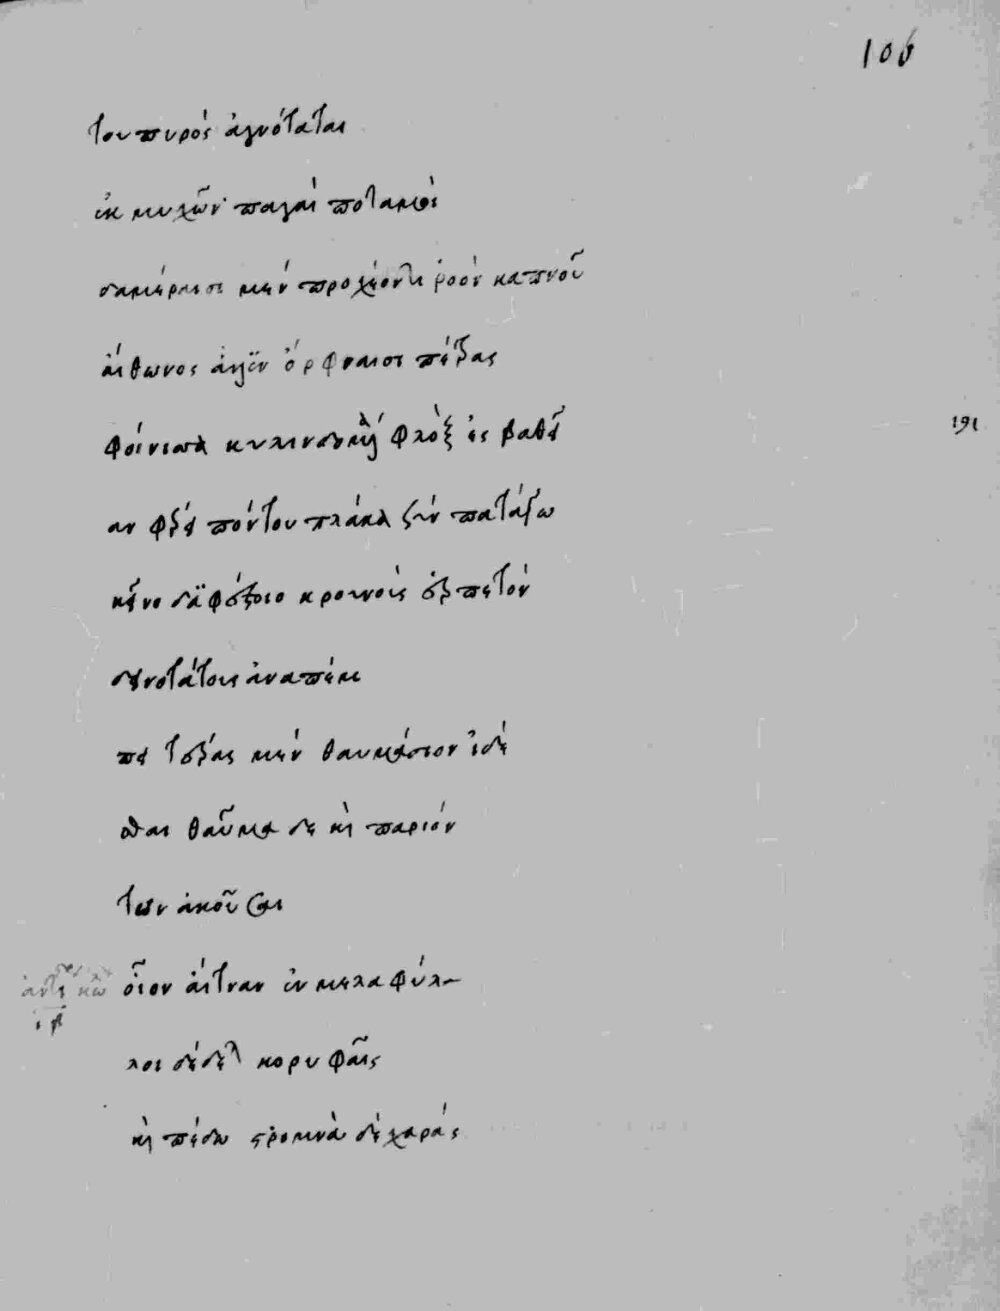 106
του πυρὸς ἁγνόταται
ἐκ μυχῶν παγαὶ ποταμοὶ
δ' ἁμέραισι μὲν προχέοντι ῥόον καπνοῦ
αἴθωνος ἀλλ' ἐν ὄρφναισι πέτρας
φοίνισσα κυλινδομένα φλὸξ ἐς βαθεῖ
αν φέρει πόντου πλάκα σὺν πατάγω
κεῖνο δ' ἀφαίστοιο κρουνοὺς ἑρπετὸν
δεινοτάτους ἀναπέμπει
τέρας μὲν θαυμάσιον ἰδέ
σθαι θαῦμα δὲ καὶ παριόν
των ἀκοῦσαι
οἷον αἴτνας ἐν μελαμφύλ
λοις δέδεται κορυφαῖς
καὶ πέδω στρωμνὰ δὲ χαράσ
191